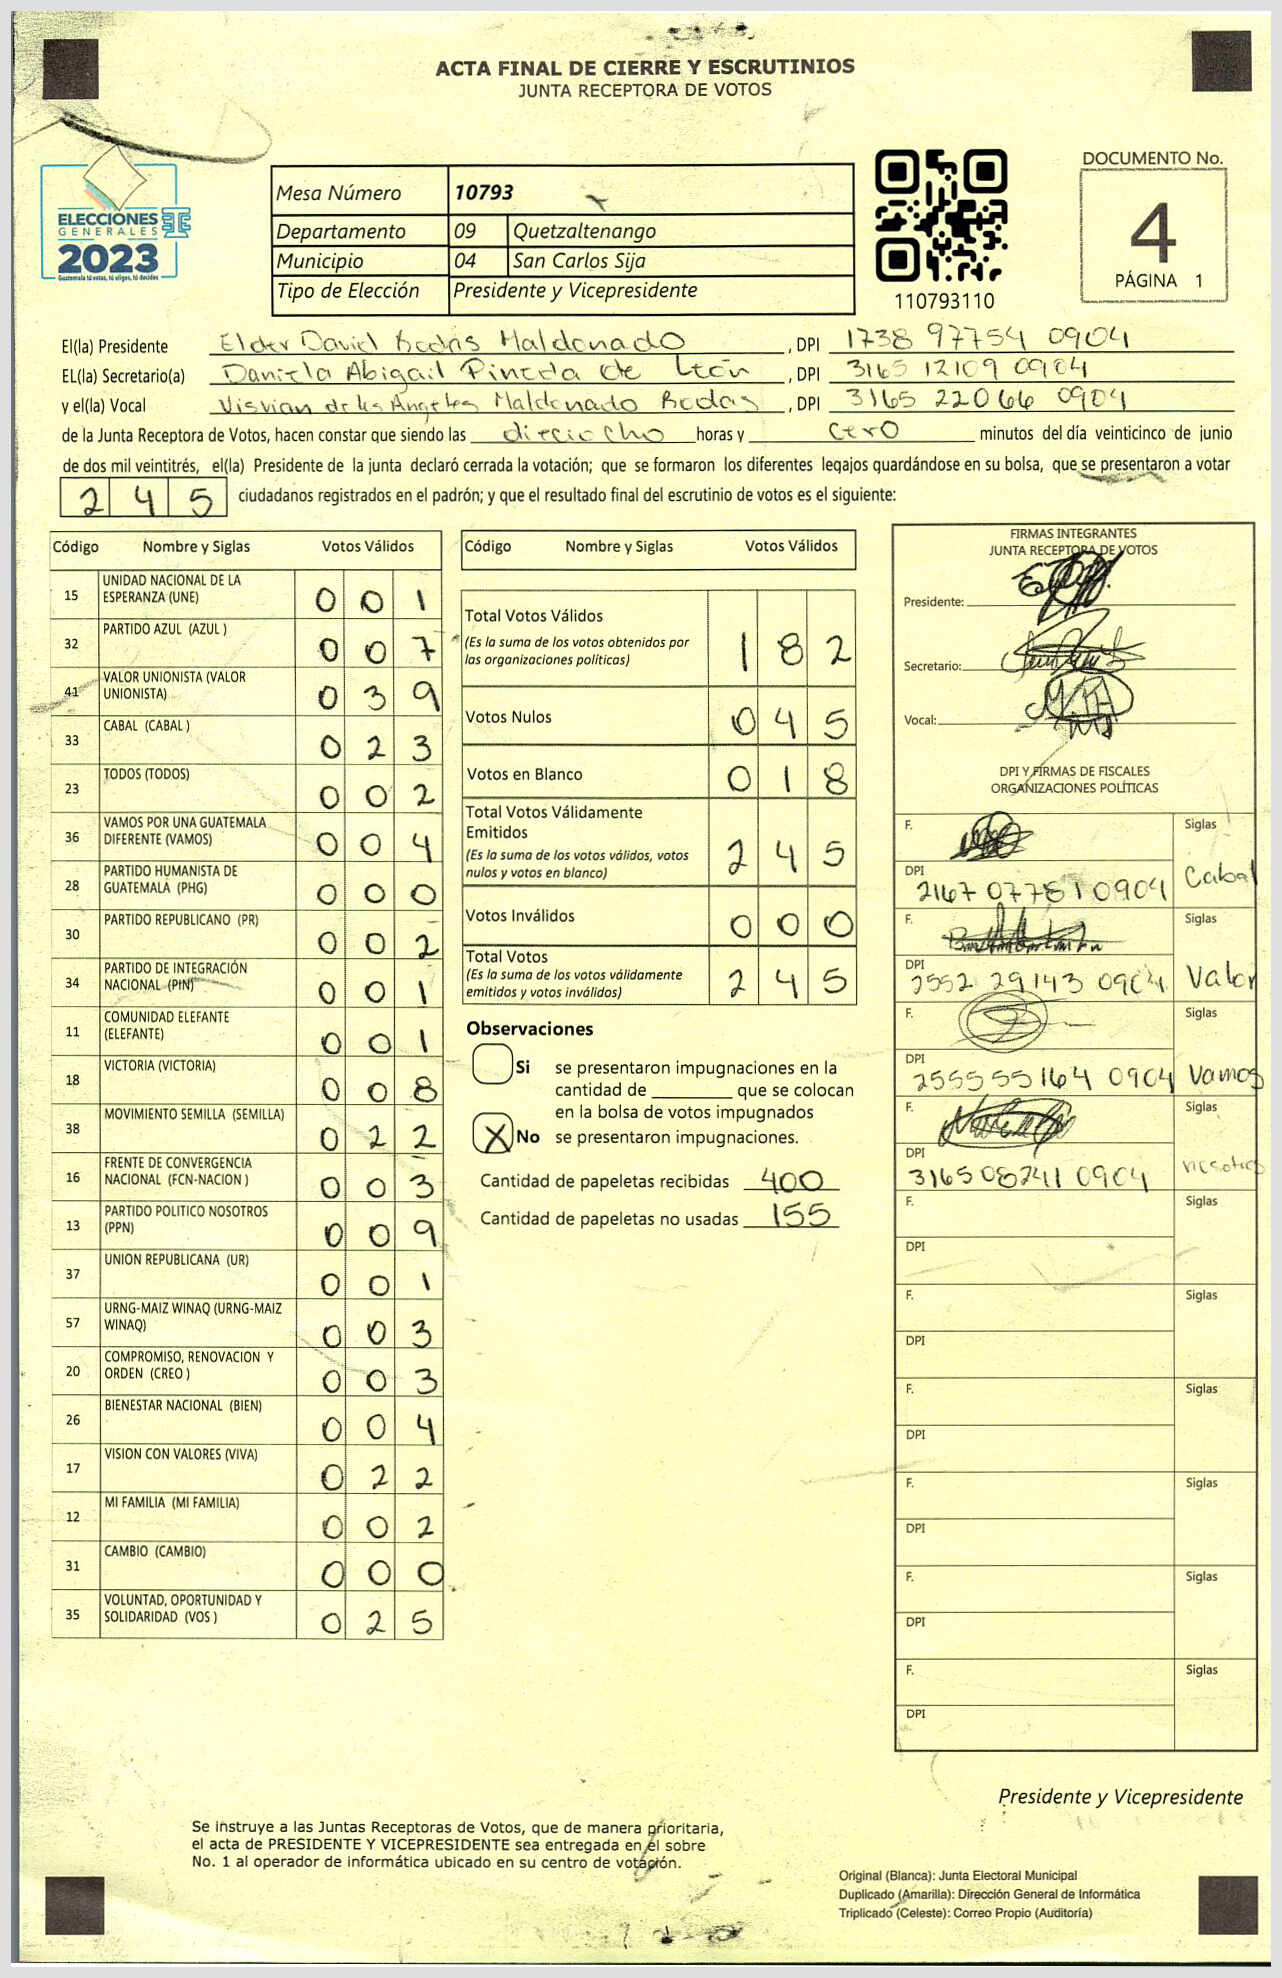 ACTA FINAL DE CIERRE Y ESCRUTINIOS
JUNTA RECEPTORA DE VOTOS
ELECCIONES
GENERALES
2023
Guatemala tú votas, tú eliges, tú decides
Mesa Número 10793
Departamento 09 Quetzaltenango
Municipio 04 San Carlos Sija
Tipo de Elección Presidente y Vicepresidente
110793110
DOCUMENTO No.
4
PÁGINA 1
El(la) Presidente Elder David Rodas Maldonado , DPI 1738 97754 0904
EL(la) Secretario(a) Daniela Abigail Pineda de León , DPI 3165 12109 0904
y el(la) Vocal Visvian de los Angeles Maldonado Rodas , DPI 3165 22066 0904
de la Junta Receptora de Votos, hacen constar que siendo las dieciocho horas y cero minutos del día veinticinco de junio
de dos mil veintitrés, el(la) Presidente de la junta declaró cerrada la votación; que se formaron los diferentes legajos guardándose en su bolsa, que se presentaron a votar
245 ciudadanos registrados en el padrón; y que el resultado final del escrutinio de votos es el siguiente:
Código Nombre y Siglas Votos Válidos
15 UNIDAD NACIONAL DE LA
ESPERANZA (UNE) 001
32 PARTIDO AZUL (AZUL ) 007
41 VALOR UNIONISTA (VALOR
UNIONISTA) 039
33 CABAL (CABAL ) 023
23 TODOS (TODOS) 002
36 VAMOS POR UNA GUATEMALA
DIFERENTE (VAMOS) 004
28 PARTIDO HUMANISTA DE
GUATEMALA (PHG) 000
30 PARTIDO REPUBLICANO (PR) 002
34 PARTIDO DE INTEGRACIÓN
NACIONAL (PIN) 001
11 COMUNIDAD ELEFANTE
(ELEFANTE) 001
18 VICTORIA (VICTORIA) 008
38 MOVIMIENTO SEMILLA (SEMILLA) 022
16 FRENTE DE CONVERGENCIA
NACIONAL (FCN-NACION ) 003
13 PARTIDO POLITICO NOSOTROS
(PPN) 009
37 UNION REPUBLICANA (UR) 001
57 URNG-MAIZ WINAQ (URNG-MAIZ
WINAQ) 003
20 COMPROMISO, RENOVACION Y
ORDEN (CREO ) 003
26 BIENESTAR NACIONAL (BIEN) 004
17 VISION CON VALORES (VIVA) 022
12 MI FAMILIA (MI FAMILIA) 002
31 CAMBIO (CAMBIO) 000
35 VOLUNTAD, OPORTUNIDAD Y
SOLIDARIDAD (VOS ) 025
Código Nombre y Siglas Votos Válidos
Total Votos Válidos
(Es la suma de los votos obtenidos por
las organizaciones políticas) 182
Votos Nulos 045
Votos en Blanco 018
Total Votos Válidamente
Emitidos
(Es la suma de los votos válidos, votos
nulos y votos en blanco) 245
Votos Inválidos 000
Total Votos
(Es la suma de los votos válidamente
emitidos y votos inválidos) 245
Observaciones
Si se presentaron impugnaciones en la
cantidad de que se colocan
en la bolsa de votos impugnados
X No se presentaron impugnaciones.
Cantidad de papeletas recibidas 400
Cantidad de papeletas no usadas 155
FIRMAS INTEGRANTES
JUNTA RECEPTORA DE VOTOS
Presidente:
Secretario:
Vocal:
DPI Y FIRMAS DE FISCALES
ORGANIZACIONES POLÍTICAS
F. Siglas
DPI 2167 07781 0904 Cabal
F. Siglas
DPI 2552 29143 0904 Valor
F. Siglas
DPI 2555 55164 0904 Vamos
F. Siglas
DPI 3165 08241 0904 nosotros
F. Siglas
DPI
F. Siglas
DPI
F. Siglas
DPI
F. Siglas
DPI
F. Siglas
DPI
F. Siglas
DPI
Presidente y Vicepresidente
Se instruye a las Juntas Receptoras de Votos, que de manera prioritaria,
el acta de PRESIDENTE Y VICEPRESIDENTE sea entregada en el sobre
No. 1 al operador de informática ubicado en su centro de votación.
Original (Blanca): Junta Electoral Municipal
Duplicado (Amarilla): Dirección General de Informática
Triplicado (Celeste): Correo Propio (Auditoría)